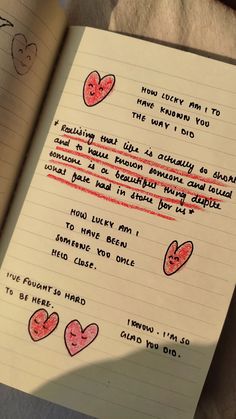 HOW LUCKY AM I TO
HAVE KNOWN YOU
THE WAY I DID
*Realising that life is actually so short
and to have known someone and loved
someone is a beautiful thing despite
what fate had in store for us*
HOW LUCKY AM I
TO HAVE BEEN
SOMEONE YOU ONCE
HELD CLOSE.
I'VE FOUGHT SO HARD
TO BE HERE.
I KNOW. I'M SO
GLAD YOU DID.